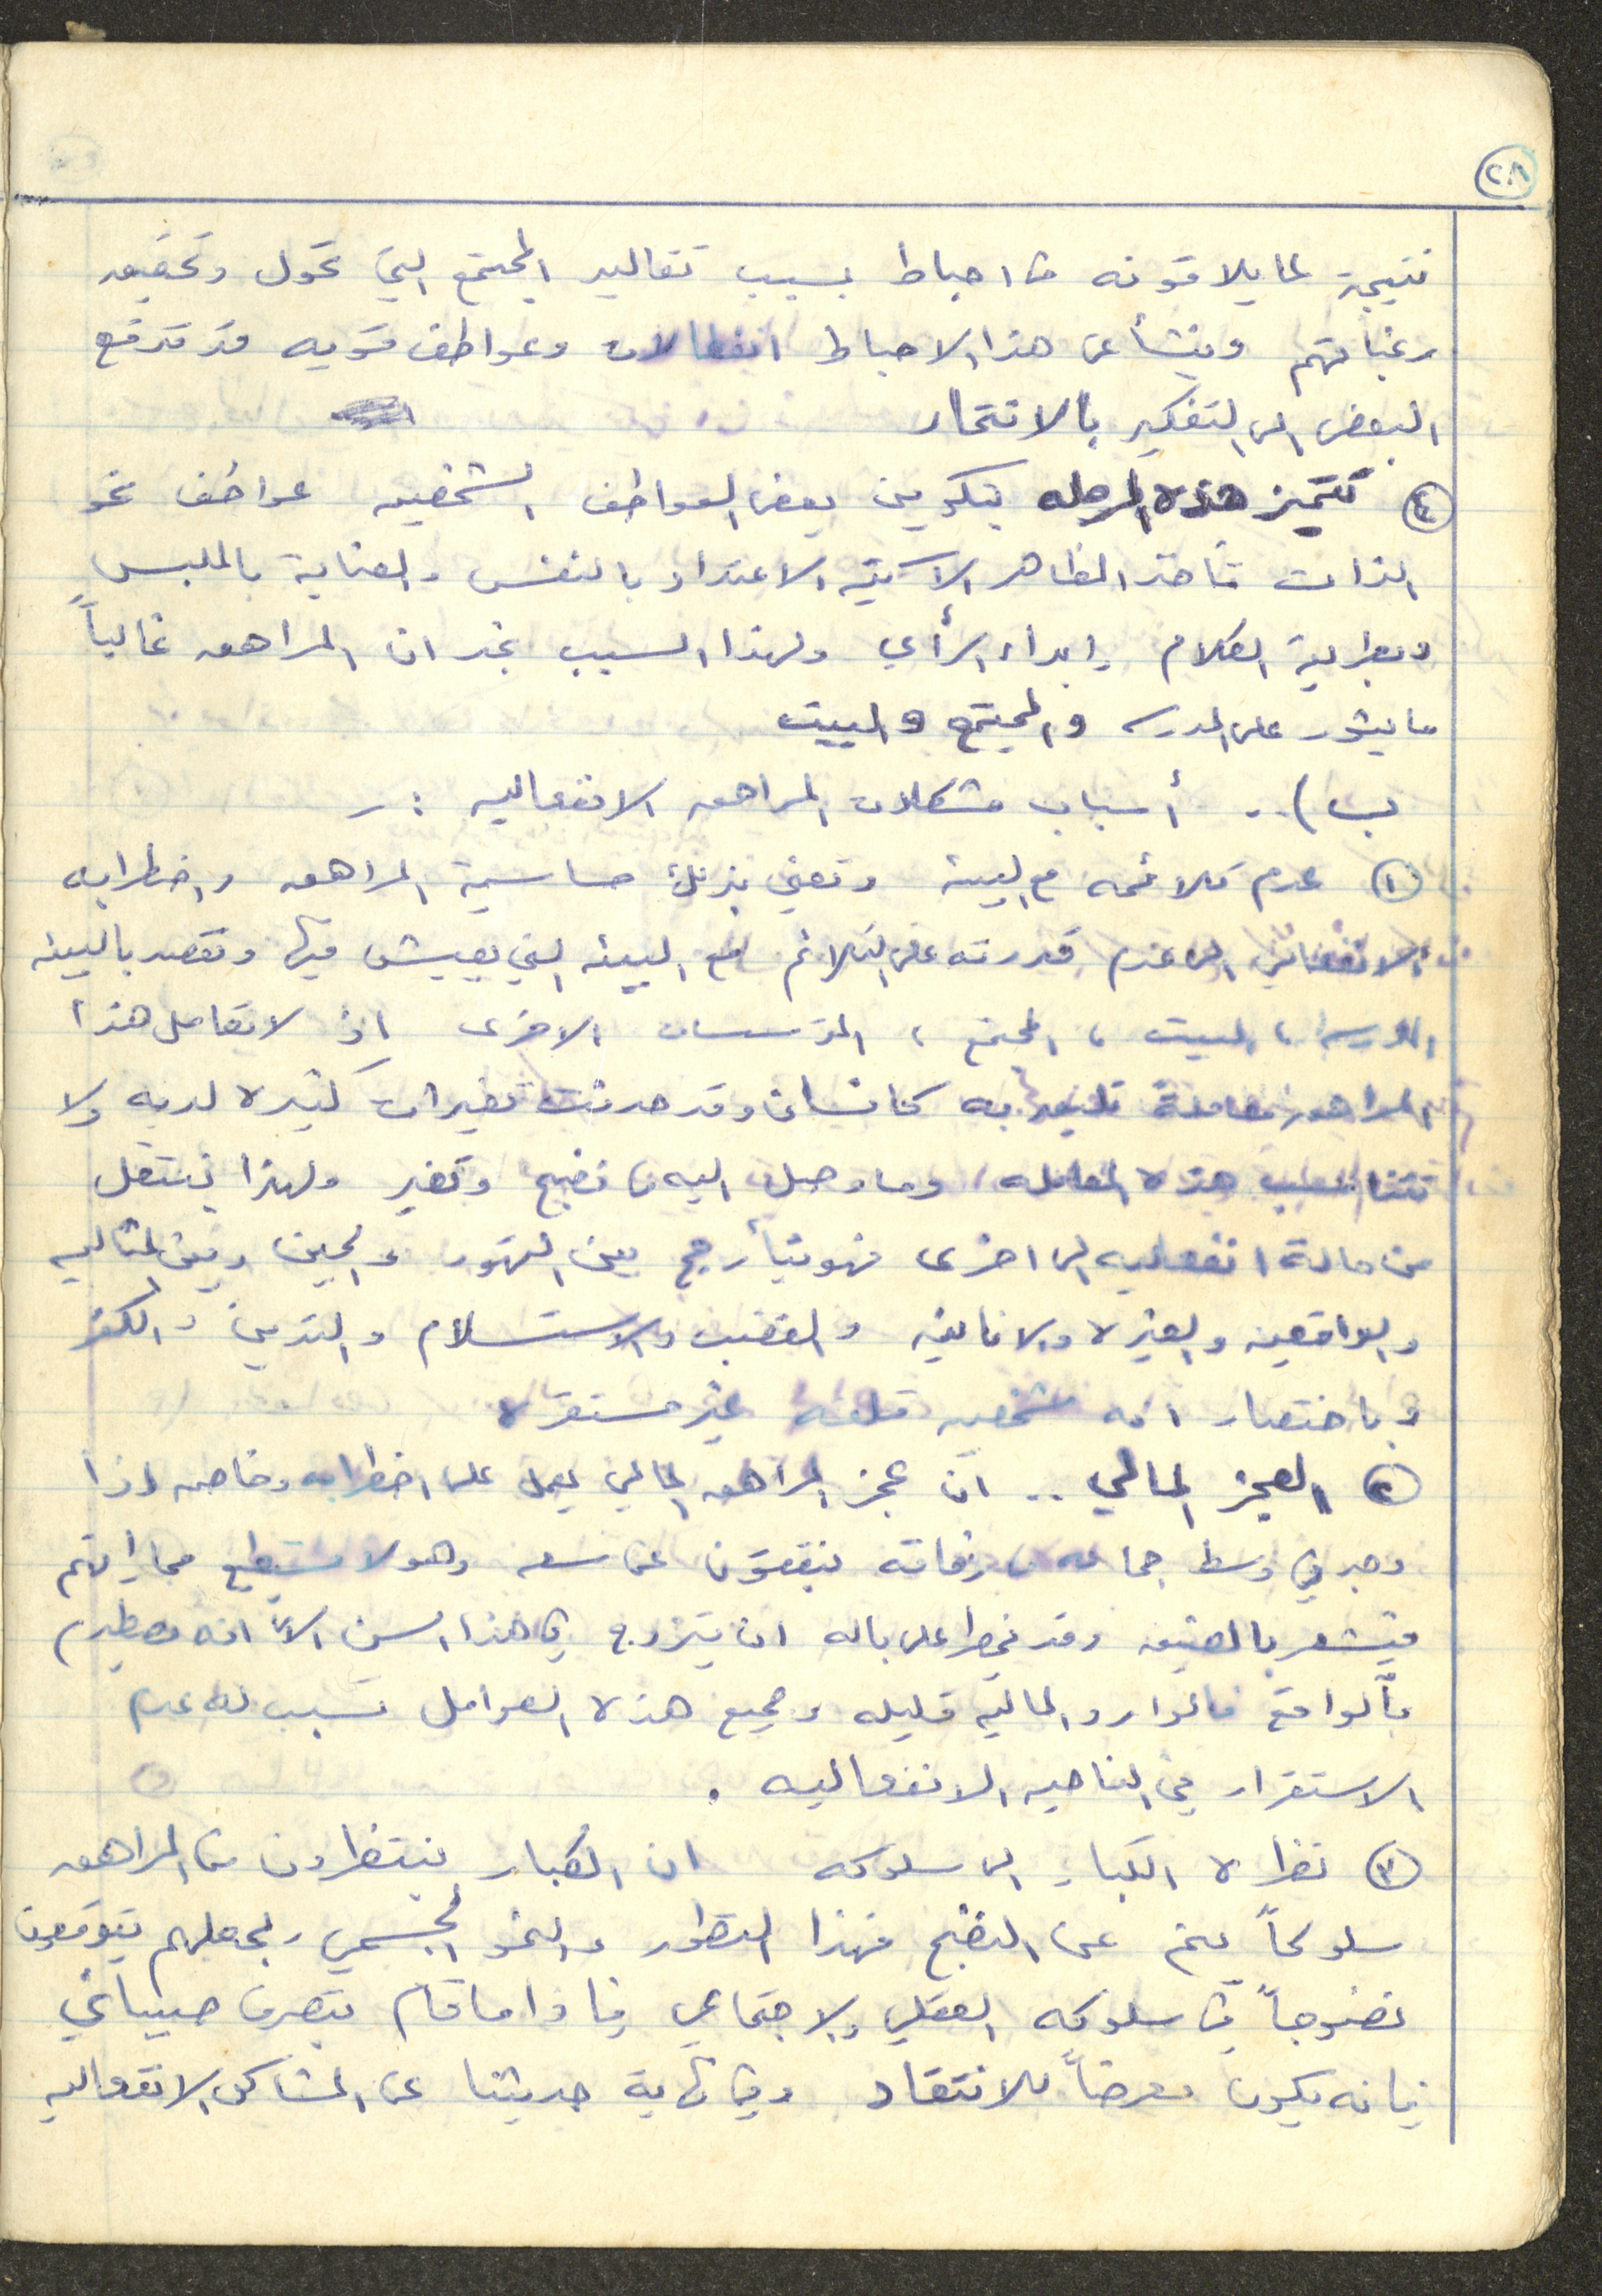 ٢٠٨
نتيجة لما يلاقونه من احباط بسبب تقاليد المجتمع التي تحول وتحقيق
رغباتهم وينشأ عن هذا الاحباط انفعالات وعواطف قويه قد تدفع
البعض الى التفكير بالانتحار
٤ تتميز هذه المرحله بتكوين بعض العواطف الشخصيه عواطف نحو
الذات تأخذ المظاهر الآتية الاعتداد بالنفس والعناية بالملبس
وبطريقة الكلام وابداء الرأي ولهذا السبب نجد ان المراهق غالباً
ما يثور على المدرسه والمجتمع والبيت
ب) .. أسباب مشكلات المراهق الانفعاليه :ـ
١ عدم تلائمه مع البيئة وتعني بذلك حساسية المراهق واضطرابه
الانفعالي الى عدم قدرته على التلائم مع البيئه التي يعيش فيها ونقصد بالبيئه
المدرسه ، البيت ، المجتمع ، المؤسسات الاخرى اذ لا تعامل هذا
المراهق معاملة تليق به كانسان وقد حدثت تغيرات كثيره لديه ولا
تتناسب هذه المعامله وما وصل اليه من نضج وتغير ولهذا ينتقل
من حالة انفعاليه الى اخرى فهو يتأرجح بين التهور والجبن وبين المثاليه
والواقعيه والغيره والانانيه والغضب والاستسلام والتدين والكفر
وباختصار انه شخصيه قلقه غير مستقره
٢ العجز المالي .. ان عجز المراهق المالي يعمل على اضطرابه وخاصه اذا
وجد في وسط جماعه من رفاقه ينفقون عن سعه وهو لا يستطيع مجاراتهم
فيشعر بالضيق وقد يخطر على باله ان يتزوج في هذا السن الاّ انه يصطدم
بالواقع فالموارد الماليه قليله وجميع هذه العوامل تسبب له عدم
الاستقرار في الناحيه الانفعاليه .
٣ نظرة الكبار الى سلوكه ان الكبار ينتظرون من المراهق
سلوكاً ينم عن النضج فهذا التطور والنمو الجسمي يجعلهم يتوقعون
نضوجاً في سلوكه العقلي والاجتماعي فاذا ما قام بتصرف صبياني
فانه يكون معرضاً للانتقاد وفي نهاية حديثنا عن المشاكل الانفعاليه